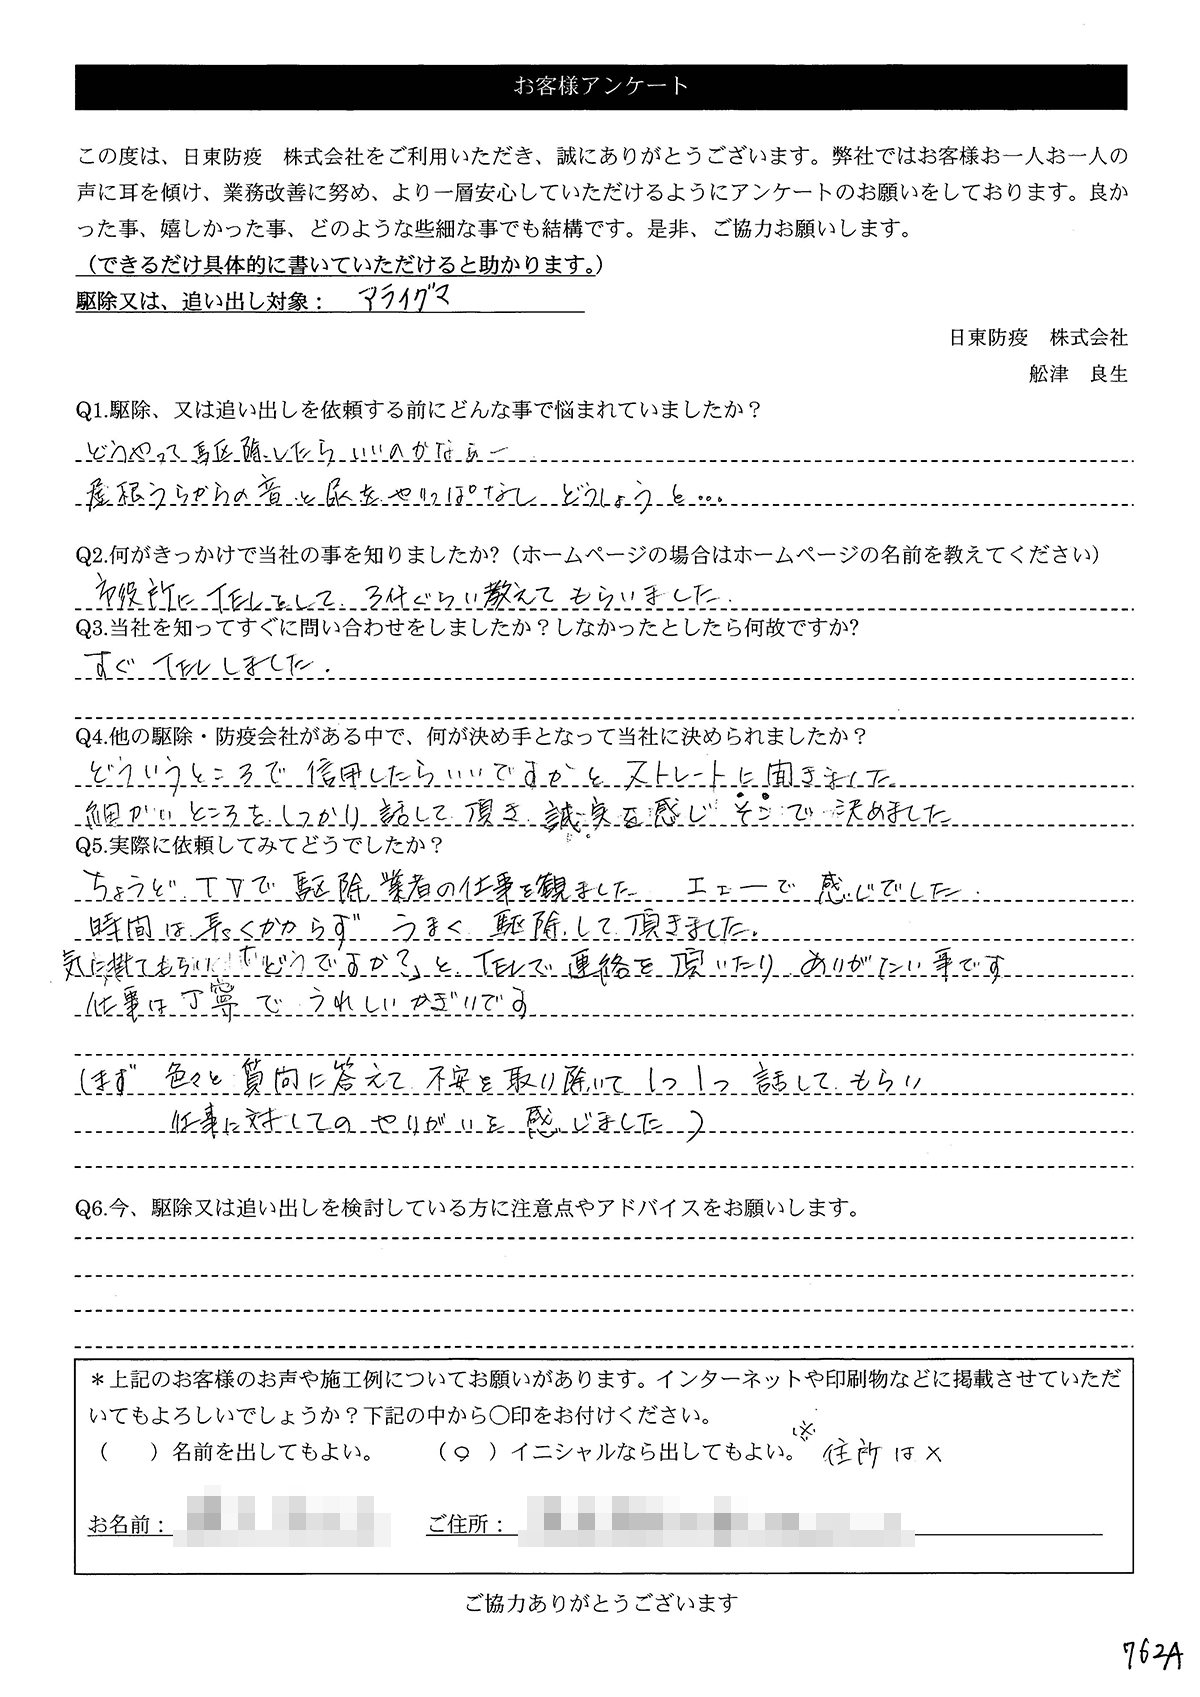 お客様アンケート
この度は、日東防疫　株式会社をご利用いただき、誠にありがとうございます。弊社ではお客様お一人お一人の
声に耳を傾け、業務改善に努め、より一層安心していただけるようにアンケートのお願いをしております。良か
った事、嬉しかった事、どのような些細な事でも結構です。是非、ご協力お願いします。
（できるだけ具体的に書いていただけると助かります。）
駆除又は、追い出し対象： アライグマ
日東防疫　株式会社
舩津　良生
Q1.駆除、又は追い出しを依頼する前にどんな事で悩まれていましたか？
どうやって駆除したらいいのかなぁー
屋根うらからの音と尿をやりっぱなし どうしょうと…
Q2.何がきっかけで当社の事を知りましたか?（ホームページの場合はホームページの名前を教えてください）
市役所にTELをして、3件ぐらい教えてもらいました.
Q3.当社を知ってすぐに問い合わせをしましたか？しなかったとしたら何故ですか?
すぐTELしました.
Q4.他の駆除・防疫会社がある中で、何が決め手となって当社に決められましたか？
どういうところで信用したらいいですかとストレートに聞きました。
細かいところをしっかり話して頂き 誠実を感じ そこで決めました
Q5.実際に依頼してみてどうでしたか？
ちょうど TVで駆除業者の仕事を観ました エェーて感じでした.
時間は長くかからず うまく駆除して頂きました。
気に掛てもらい どうですか？」と TELで連絡を頂いたり ありがたい事です
仕事は丁寧で うれしいかぎりです
(まず 色々と質問に答えて 不安を取り除いて 1つ1つ話してもらい
仕事に対してのやりがいを感じました)
Q6.今、駆除又は追い出しを検討している方に注意点やアドバイスをお願いします。
＊上記のお客様のお声や施工例についてお願いがあります。インターネットや印刷物などに掲載させていただ
いてもよろしいでしょうか？下記の中から〇印をお付けください。
（　　）名前を出してもよい。　　（〇）イニシャルなら出してもよい。※ 住所は×
お名前：　　ご住所：
ご協力ありがとうございます
762A